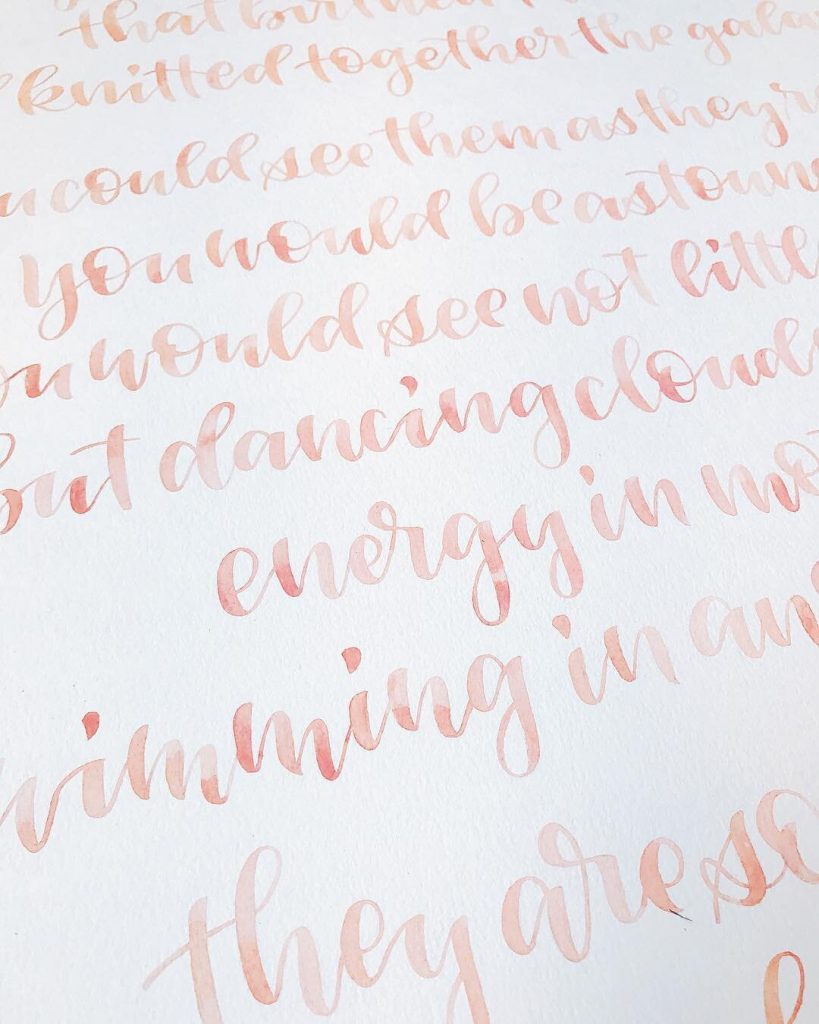 that birthed
knitted together the gala
u could see them as they're
you would be astoun
ou would see not little
but dancing clouds
energy in mo
wimming in an
they are so